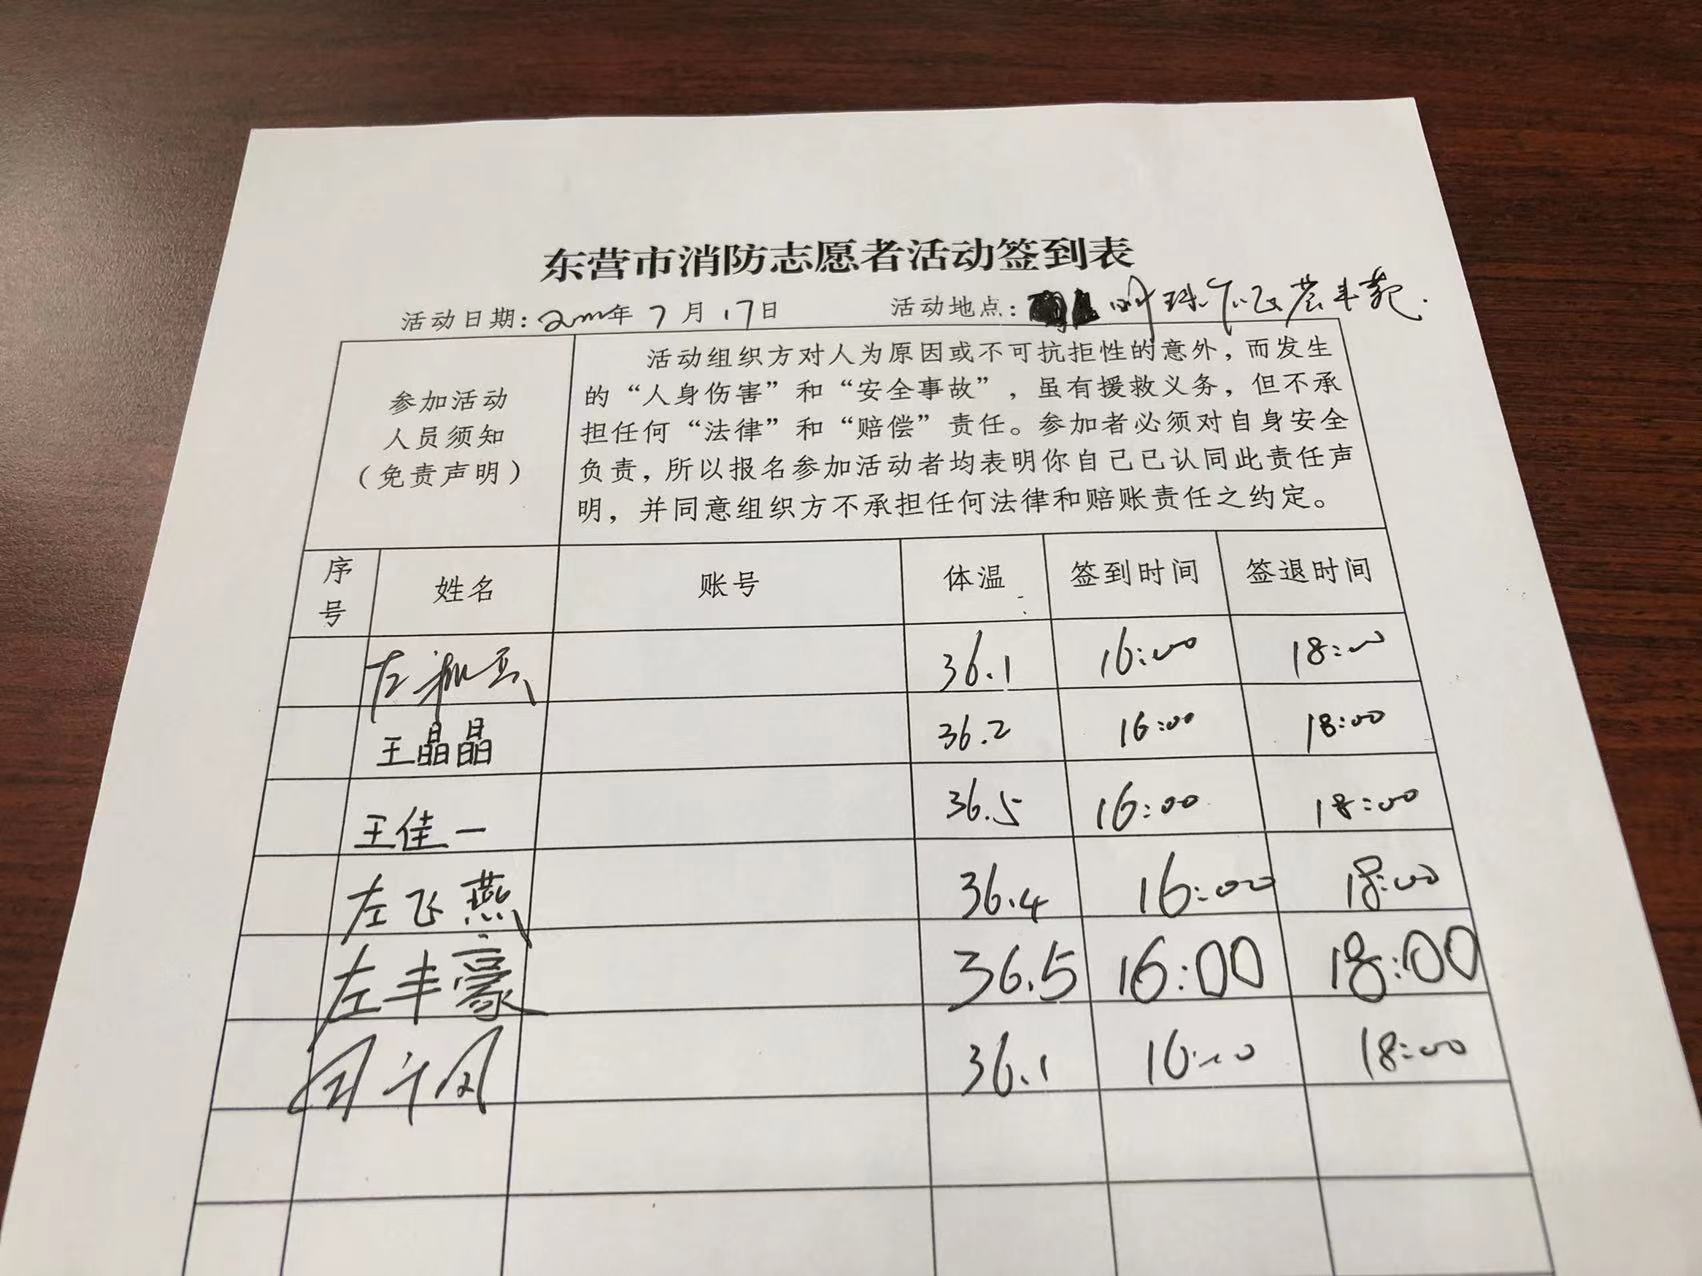 东营市消防志愿者活动签到表
活动日期：年7月17日 活动地点：明珠
活动组织方对人为原因或不可抗拒性的意外，而发生
的“人身伤害”和“安全事故”，虽有援救义务，但不承
担任何“法律”和“赔偿”责任。参加者必须对自身安全
负责，所以报名参加活动者均表明你自己已认同此责任声
明，并同意组织方不承担任何法律和赔账责任之约定。
参加活动
人员须知
（免责声明）
序号 姓名 账号 体温 签到时间 签退时间
左 36.1 16:00 18:00
王晶晶 36.2 16:00 18:00
王佳一 36.5 16:00 18:00
左飞燕 36.4 16:00 18:00
左丰豪 36.5 16:00 18:00
36.1 16:00 18:00